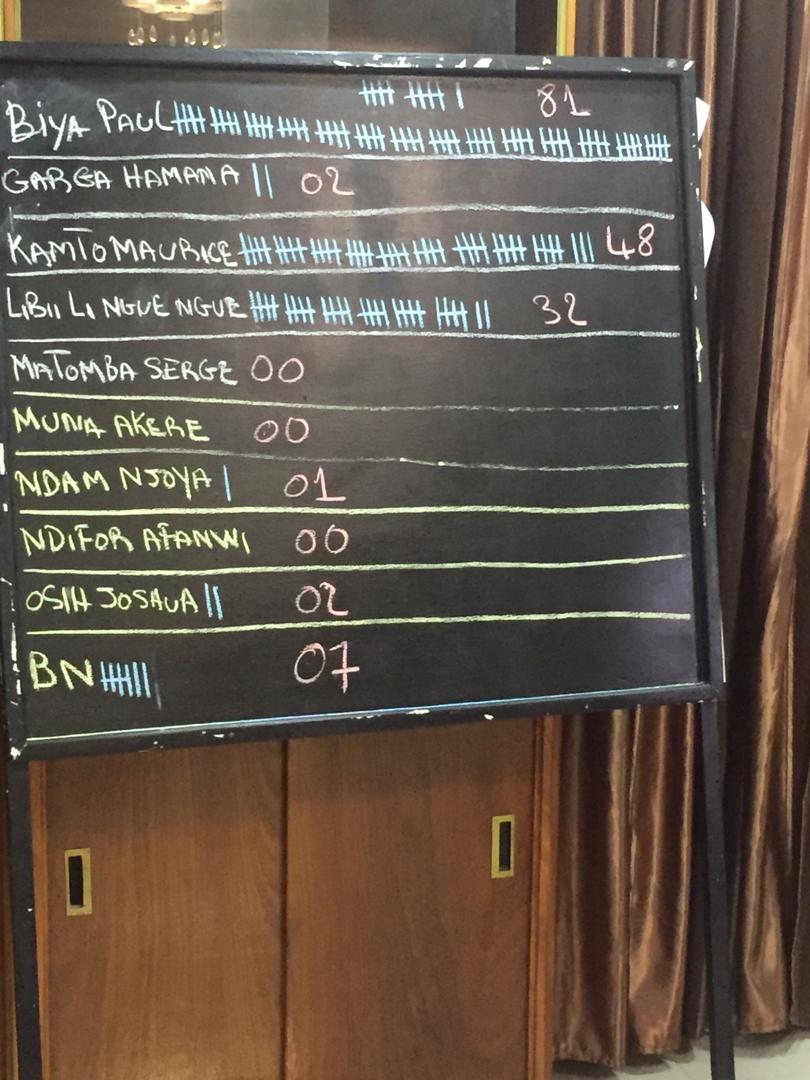 BiYA PAUL 81
GARGA HAMANA 02
KAMTO MAURICE 48
LiBii Li NGUE NGUE 32
MATOMBA SERGE 00
MUNA AKERE 00
NDAM NJOYA 01
NDiFOR AFANWI 00
OSIH JOSHUA 02
BN 07